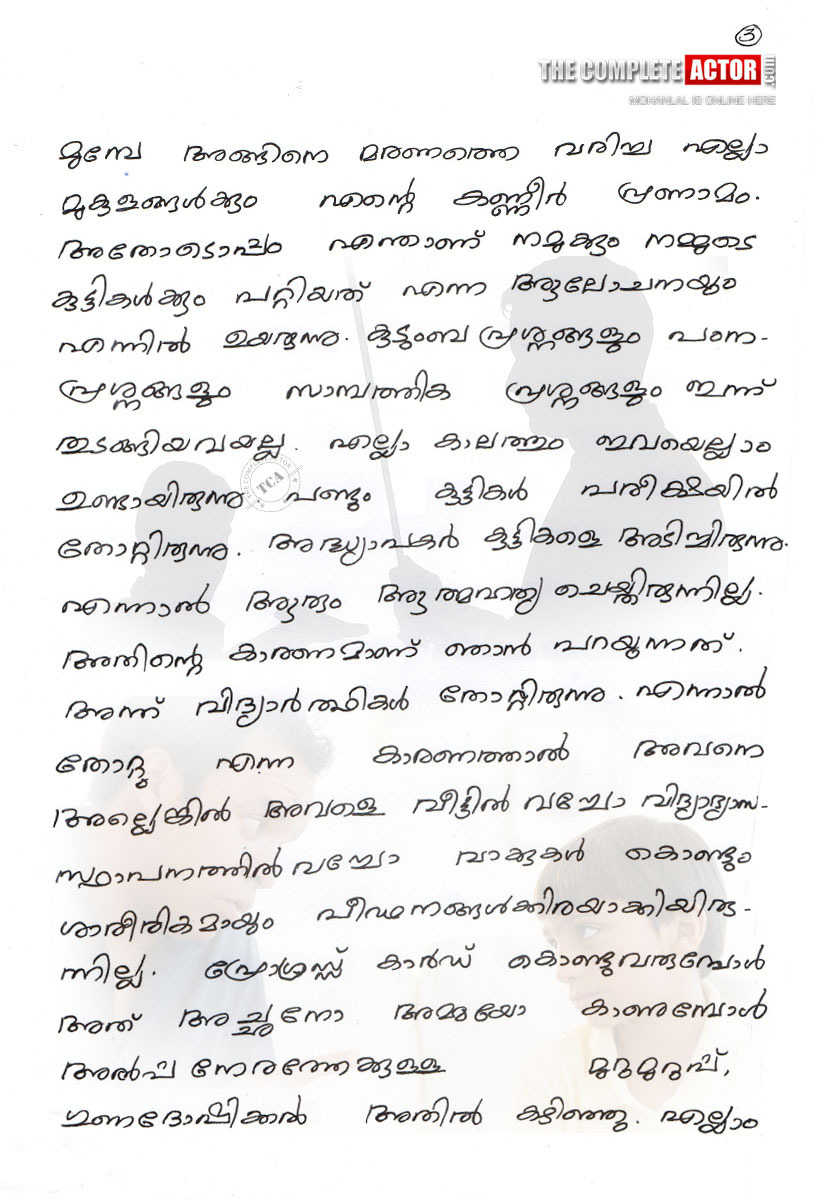 3
THE COMPLETE ACTOR .com
MOHANLAL IS ONLINE HERE
മുമ്പേ അങ്ങിനെ മരണത്തെ വരിച്ച എല്ലാ
മുകുളങ്ങൾക്കും എന്റെ കണ്ണീർ പ്രണാമം.
അതോടൊപ്പം എന്താണ് നമുക്കും നമ്മുടെ
കുട്ടികൾക്കും പറ്റിയത് എന്ന ആലോചനയും
എന്നിൽ ഉയരുന്നു. കുടുംബ പ്രശ്നങ്ങളും പഠന-
പ്രശ്നങ്ങളും സാമ്പത്തിക പ്രശ്നങ്ങളും ഇന്ന്
തുടങ്ങിയവയല്ല. എല്ലാ കാലത്തും ഇവയെല്ലാം
ഉണ്ടായിരുന്നു പണ്ടും കുട്ടികൾ പരീക്ഷയിൽ
തോറ്റിരുന്നു. അദ്ധ്യാപകർ കുട്ടികളെ അടിച്ചിരുന്നു.
എന്നാൽ ആരും ആത്മഹത്യ ചെയ്തിരുന്നില്ല.
അതിന്റെ കാരണമാണ് ഞാൻ പറയുന്നത്.
അന്ന് വിദ്യാർത്ഥികൾ തോറ്റിരുന്നു. എന്നാൽ
തോറ്റു എന്ന കാരണത്താൽ അവനെ
അല്ലെങ്കിൽ അവളെ വീട്ടിൽ വച്ചോ വിദ്യാഭ്യാസ-
സ്ഥാപനത്തിൽ വച്ചോ വാക്കുകൾ കൊണ്ടും
ശാരീരികമായും പീഢനങ്ങൾക്കിരയാക്കിയിരു-
ന്നില്ല. പ്രോഗ്രസ്സ് കാർഡ് കൊണ്ടുവരുമ്പോൾ
അത് അച്ഛനോ അമ്മയോ കാണുമ്പോൾ
അൽപ നേരത്തേക്കുള്ള മുറുമുറുപ്പ്,
ഗുണദോഷിക്കൽ അതിൽ കഴിഞ്ഞു. എല്ലാം
TCA